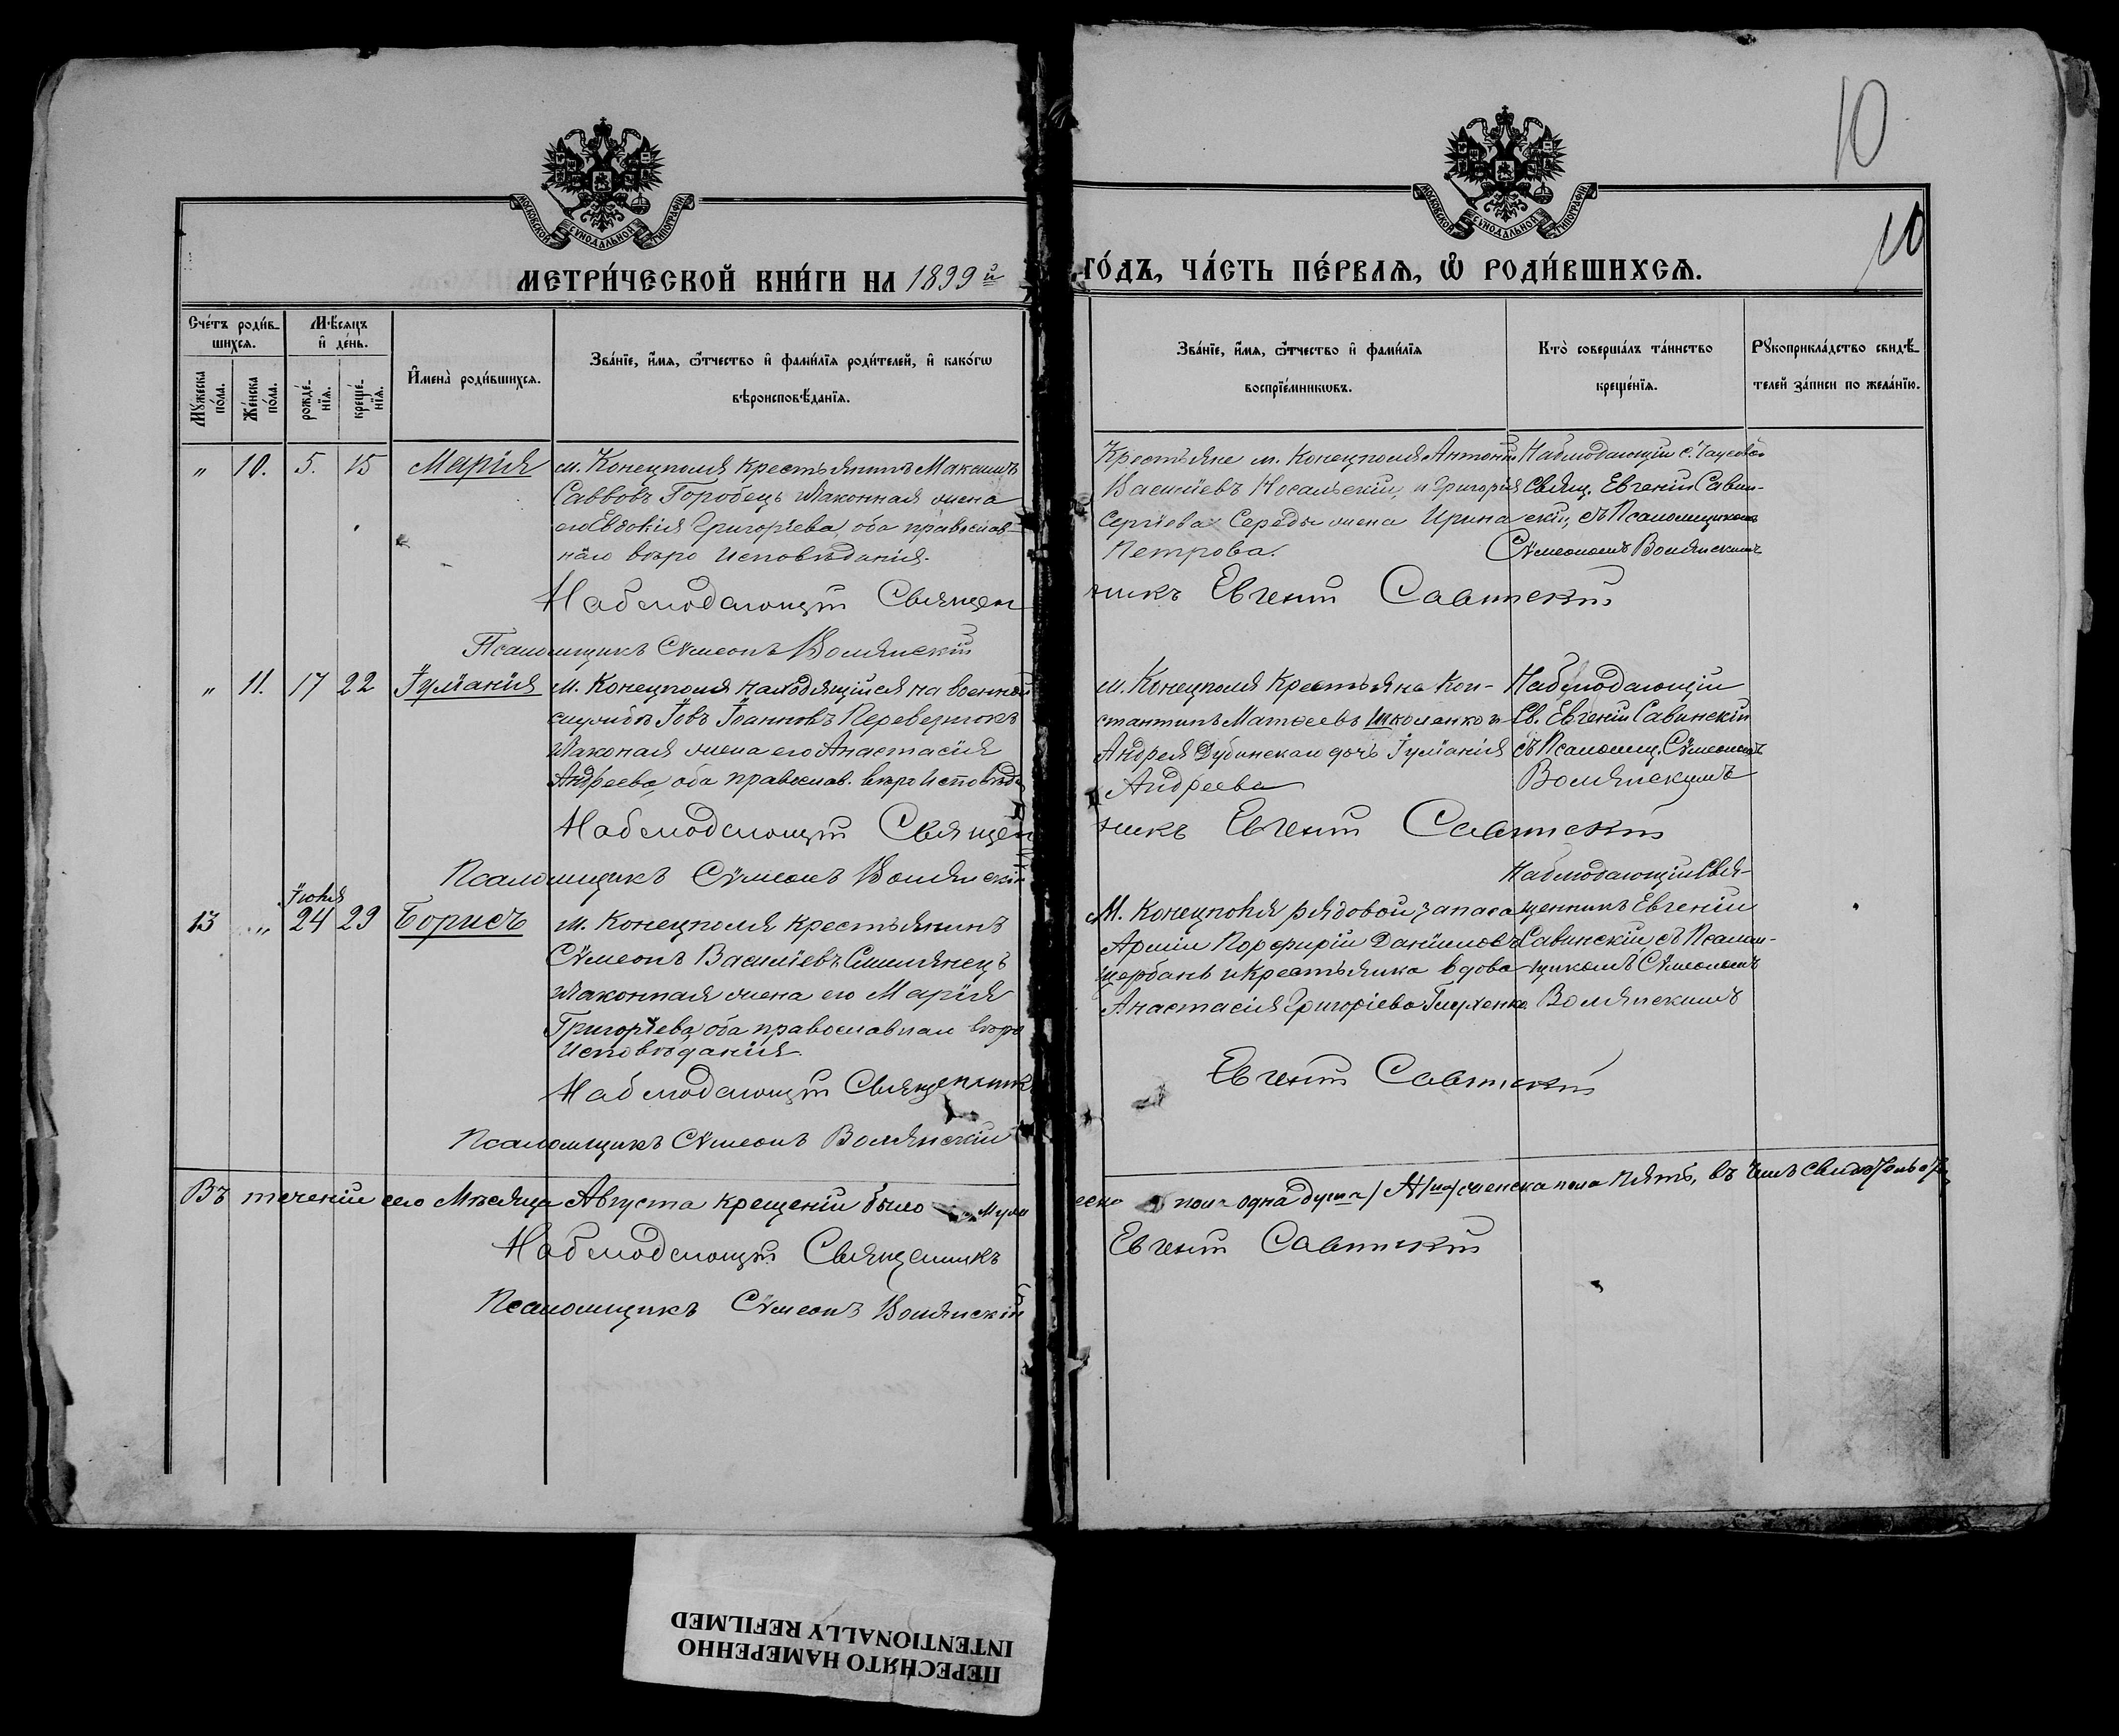 10
10
МОСКОВСКОЙ СѴНОДАЛЬНОЙ ТИПОГРАФІИ
МОСКОВСКОЙ СѴНОДАЛЬНОЙ ТИПОГРАФІИ
МЕТРИ́ЧЕСКОЙ КНИ́ГИ НА 1899 й
ГО́ДЪ, ЧА́СТЬ ПЕ́РВАѦ, Ѡ҆ РОДИ́ВШИХСѦ.
Сче́тъ роди́в-
шихсѧ.
Мѣ́сѧцъ
и҆ де́нь.
Мꙋ́жеска
по́ла.
Же́нска
по́ла.
рожде́-
нїѧ.
креще́-
нїѧ.
И҆мена̀ роди́вшихсѧ.
Зва́нїе, и҆́мѧ, ѻ҆́тчество и҆ фами́лїѧ роди́телей, и҆ како́гѡ
вѣроисповѣ́данїѧ.
Зва́нїе, и҆́мѧ, ѻ҆́тчество и҆ фами́лїѧ
воспрїе́мникѡвъ.
Кто̀ соверша́лъ та́инство
креще́нїѧ.
Рꙋкоприкла́дство свидѣ́-
телей за́писи по жела́нїю.
" 10. 5. 15 Марія
м. Конецполя крестьянинъ Максимъ
Саввовъ Горобецъ законная жена
его Евдокія Григорьева, оба православ-
наго вѣро исповѣданія.
Крестьяне м. Конецполя Антоній
Василіевъ Носальскій, и Григорія
Сергіева Середы жена Ирина
Петрова.
Наблюдающій с.
Свящ. Евгеній Савин-
скій, съ Псаломщикомъ
Сѵмеономъ Волянскимъ
Наблюдающій Священникъ Евгеній Савинскій
Псаломщикъ Сѵмеонъ Волянскій
" 11. 17 22 Іуліанія
м. Конецполя находящійся на военной
службѣ Іовъ Іоанновъ Перевезнюкъ
законая жена его Анастасія
Андреева, оба православ. вѣро исповѣд
м. Конецполя Крестьяне Кон-
стантинъ Матѳеевъ Школенко и
Андрея Дубинскаго дочь Іуліанія
Андреева
Наблюдающій
Св. Евгеній Савинскій
съ Псаломщ. Сѵмеономъ
Волянскимъ
Наблюдающій Священникъ Евгеній Савинскій
Псаломщикъ Сѵмеонъ Волянскій
Іюня
13 " 24 29 Борисъ
м. Конецполя крестьянинъ
Сѵмеонъ Василіевъ Смилянецъ
законная жена его Марія
Григоріева, оба православнаго вѣро
исповѣданія.
М. Конецполя рядовой запаса
Арміи Порфирій Даніиловъ
Щербань и крестьянка вдова
Анастасія Григоріева
Наблюдающій Свя-
щенникъ Евгеній
Савинскій съ Псалом-
щикомъ Сѵмеономъ
Волянскимъ
Наблюдающій Священникъ Евгеній Савинскій
Псаломщикъ Сѵмеонъ Волянскій
Въ теченіи сего Мѣсяца Августа крещеній было муже
ска пола одна душа женска пола пять, въ чемъ
Наблюдающій Священникъ Евгеній Савинскій
Псаломщикъ Сѵмеонъ Волянскій
ПЕРЕСНЯТО НАМЕРЕННО
INTENTIONALLY REFILMED